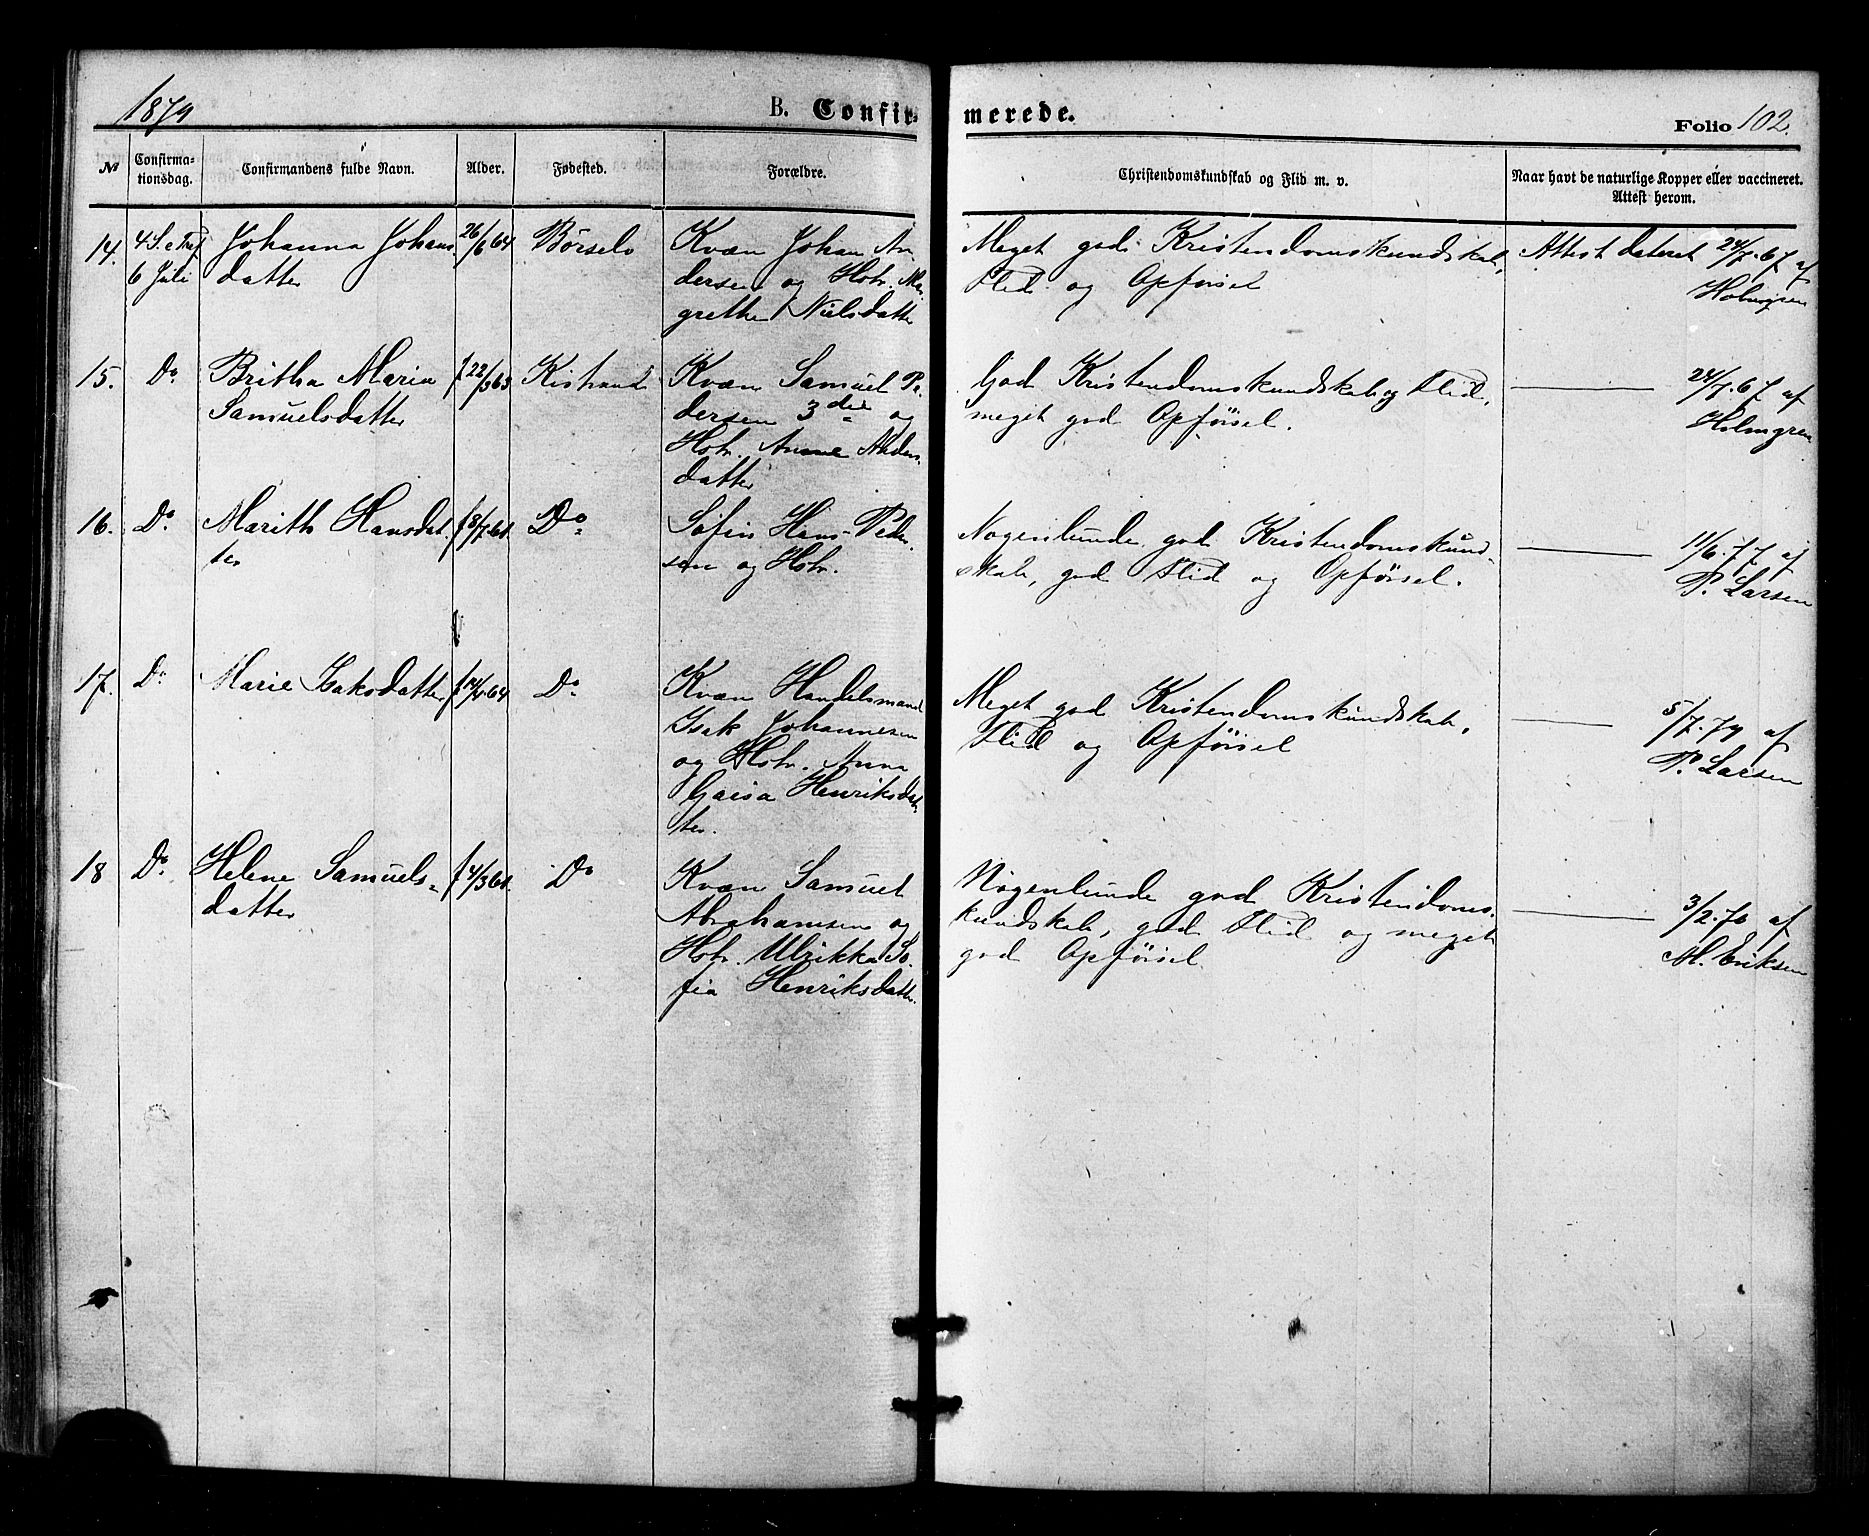 1879
B. Confir-
merede.
Folio 102.
No
Confirma-
tionsdag.
Confirmandens fulde Navn.
Alder.
Fødested.
Forældre.
Christendomskundskab og Flid m. v.
Naar havt de naturlige Kopper eller vaccineret.
Attest herom.
14.
4 S. e Tref
6 Juli
Johanna Johans
datter
26/6 64
Børselv
Kvæn Johan An
dersen og Hstr. Mar
grethe Nielsdatter
Meget god Kristendomskundskab,
Flid og Opførsel
Attest dateret 24/7. 67 af
Holmgren
15.
Do.
Britha Maria
Samuelsdatter
f 22/3 63
Kistrand
Kvæn Samuel Pe
dersen 3die og
Hstr. Anne
datter
God Kristendomskundskab og Flid,
meget god Opførsel.
24/7. 67 af
Holmgren
16.
Do.
Marith Hansdat
ter
f 8/7 64.
Do.
Søfin Hans Peder
sen og Hstr.
Nogenlunde god Kristendomskund-
skab, god Flid og Opførsel.
11/6. 77 af
P. Larsen
17.
Do.
Marie Isaksdatter
64
Do.
Kvæn Handelsmand
Isak Johannesen
og Hstr. Anna
Gaisa Henriksdat
ter.
Meget god Kristendomskundskab,
Flid og Opførsel
5/7. 79 af
P. Larsen
18
Do.
Helene Samuels-
datter
f 4/3 64.
Do
Kvæn Samuel
Abrahamsen og
Hstr. Ulrikka So
fia Henriksdatter.
Nogenlunde god Kristendoms-
kundskab, god Flid og meget
god Opførsel
3/2. 70 af
M. Eriksen